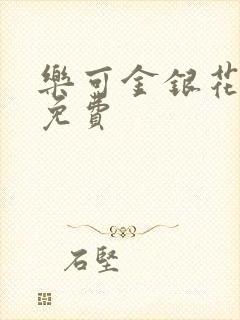 樂可金銀花
免費
石堅